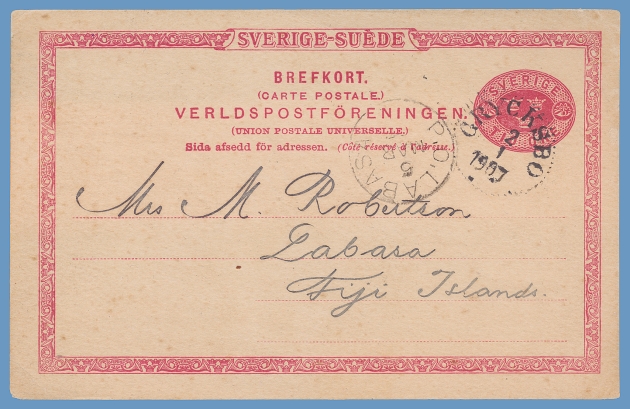 SVERIGE-SUÈDE
BREFKORT.
(CARTE POSTALE.)
VERLDSPOSTFÖRENINGEN.
(UNION POSTALE UNIVERSELLE.)
Sida afsedd för adressen. (Côté réservé à l'adresse.)
SVERIGE
GRYCKSBO
2
1
1907
LABASA
Mrs M. Robertson
Labasa
Fiji Islands.